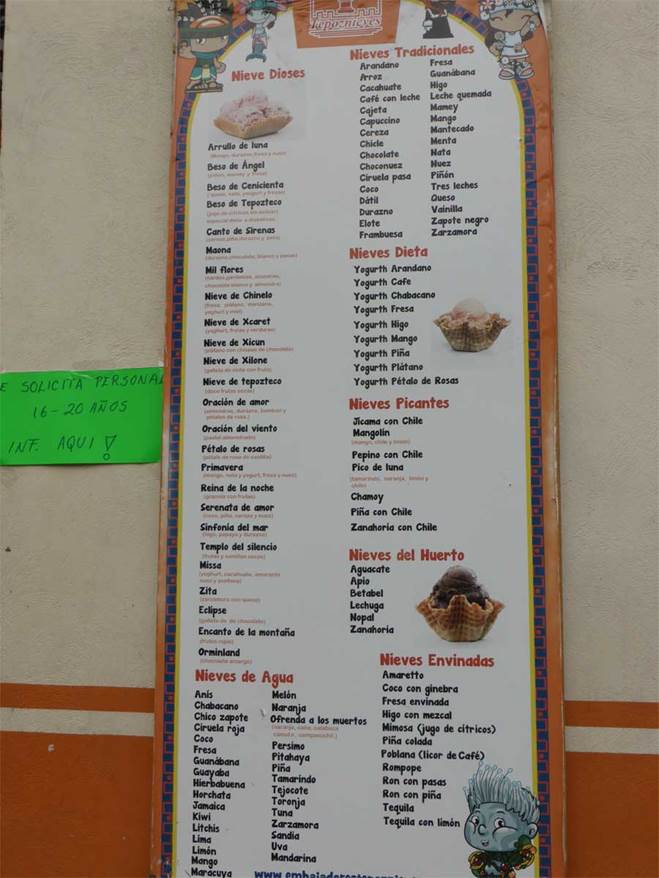 Tepo-nieves
Nieve Dioses
Arrullo de luna
Beso de Ángel
Beso de Cenicienta
Beso de Tepozteco
Canto de Sirenas
Maona
Mil flores
Nieve de Chinelo
Nieve de Xcaret
Nieve de Xicun
Nieve de Xilone
Nieve de tepozteco
Oración de amor
Oración del viento
(pastel almendrado)
Pétalo de rosas
Primavera
Reina de la noche
Serenata de amor
Sinfonia del mar
(higo, papaya y durazno)
Templo del silencio
Missa
Zita
(zarzamora con queso)
Eclipse
Encanto de la montaña
(frutos rojos)
Orminland
(chocolate amargo)
Nieves de Agua
Anís
Chabacano
Chico zapote
Ciruela roja
Coco
Fresa
Guanábana
Guayaba
Hierbabuena
Horchata
Jamaica
Kiwi
Litchis
Lima
Limón
Mango
Maracuya
Melón
Naranja
Ofrenda a los muertos
Persimo
Pitahaya
Piña
Tamarindo
Tejocote
Toronja
Tuna
Zarzamora
Sandia
Uva
Mandarina
Nieves Tradicionales
Arandano
Arroz
Cacahuate
Café con leche
Cajeta
Capuccino
Cereza
Chicle
Chocolate
Choconuez
Ciruela pasa
Coco
Dátil
Durazno
Elote
Frambuesa
Fresa
Guanábana
Higo
Leche quemada
Mamey
Mango
Mantecado
Menta
Nata
Nuez
Piñón
Tres leches
Queso
Vainilla
Zapote negro
Zarzamora
Nieves Dieta
Yogurth Arandano
Yogurth Cafe
Yogurth Chabacano
Yogurth Fresa
Yogurth Higo
Yogurth Mango
Yogurth Piña
Yogurth Plátano
Yogurth Pétalo de Rosas
Nieves Picantes
Jicama con Chile
Mangolin
(mango, chile y limon)
Pepino con Chile
Pico de luna
(tamarindo, naranja, limón y
chile)
Chamoy
Piña con Chile
Zanahoria con Chile
Nieves del Huerto
Aguacate
Apio
Betabel
Lechuga
Nopal
Zanahoria
Nieves Envinadas
Amaretto
Coco con ginebra
Fresa envinada
Higo con mezcal
Mimosa (jugo de citricos)
Piña colada
Poblana (licor de Café)
Rompope
Ron con pasas
Ron con piña
Tequila
Tequila con limón
E SOLICITA PERSONAL
16-20 AÑOS
INF. AQUI !